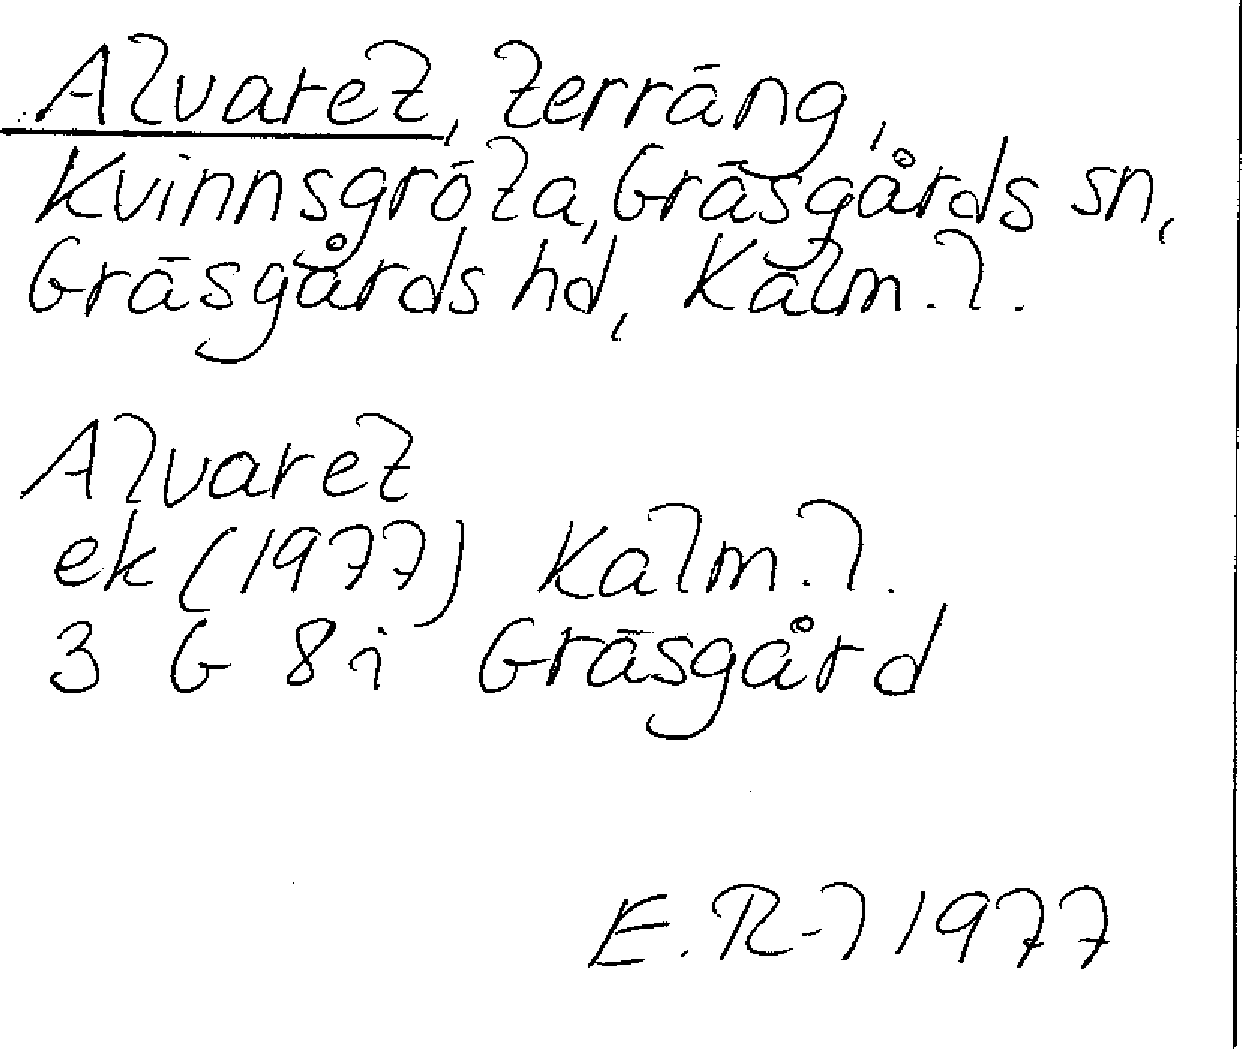 Alvaret, terräng,
Kvinnsgröta, Gräsgårds sn,
Gräsgårds hd, Kalm.l.
Alvaret
ek (1977) Kalm.l.
3 G 8i Gräsgård
E.R-l 1977